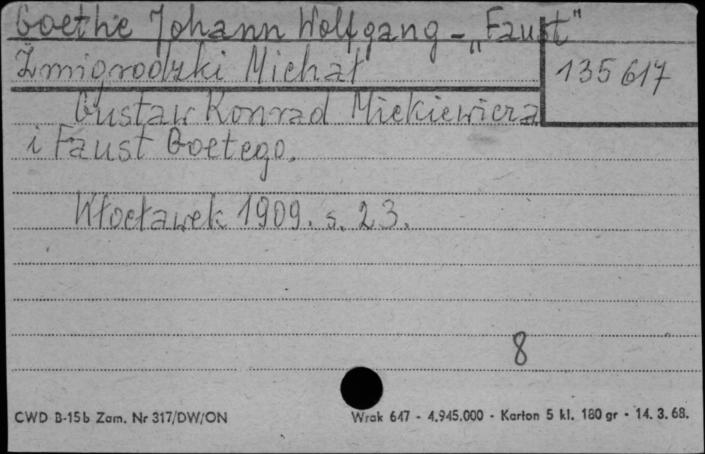 Goethe Johann Wolfgang - „Faust"
Żmigrodzki Michał
135 617
Gustaw Konrad Mickiewicza
i Faust Goetego.
Włocławek 1909. s. 23.
8
CWD B-15b Zam. Nr 317/DW/ON
Wrak 647 - 4.945.000 - Karton 5 kl. 180 gr - 14. 3. 68.